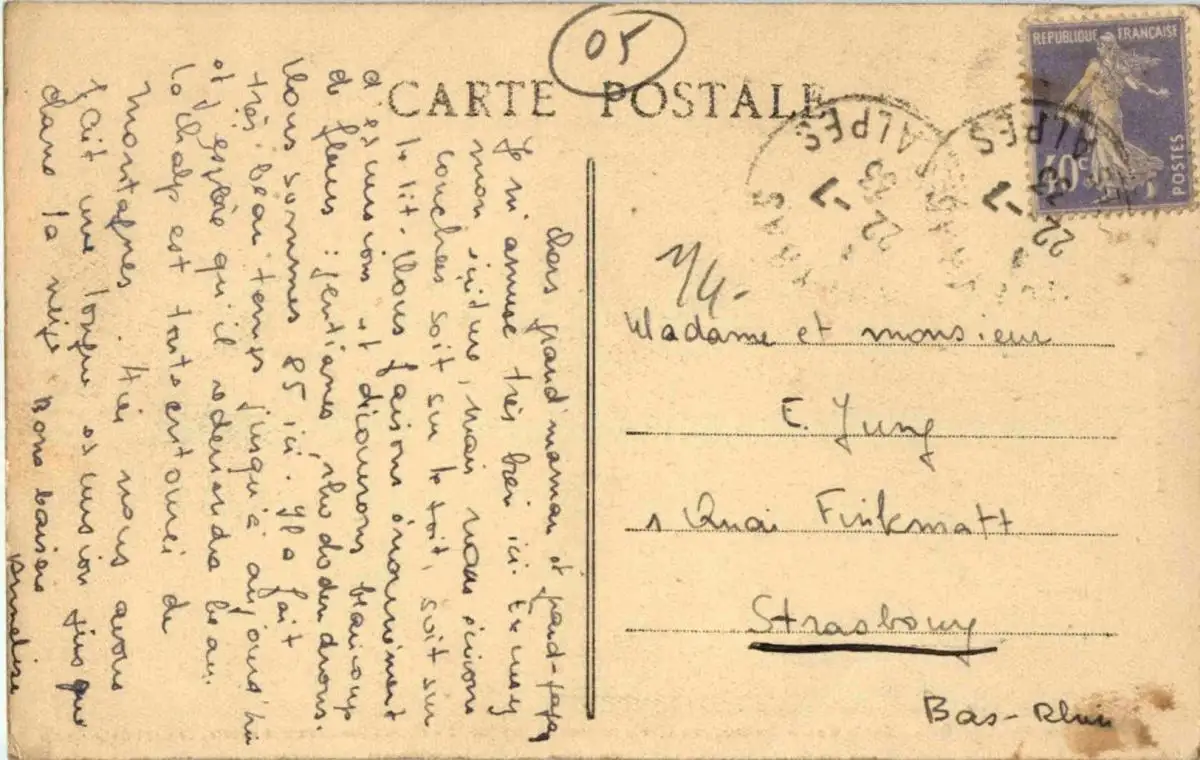 05
CARTE POSTALE
REPUBLIQUE FRANÇAISE
40c
POSTES
ALPES
22 -7
33
ALPES
22 -7
33
Chers grand'maman et grand-papa
Je m'amuse très bien ici. Excusez
mon écriture, mais nous écrivons
couchées soit sur le toit, soit sur
le lit. Nous faisons énormément
d'excursions et découvrons beaucoup
de fleurs : gentianes, rhododendrons.
Nous sommes 85 ici. Il a fait
très beau temps jusqu'à aujourd'hui
et j'espère qu'il redeviendra beau.
La chalp est toute entourée de
montagnes. Hier nous avons
fait une longue excursion jusque
dans la neige. Bons baisers
1/4.
Madame et monsieur
E. Jung
1 Quai Finkmatt
Strasbourg
Bas-Rhin